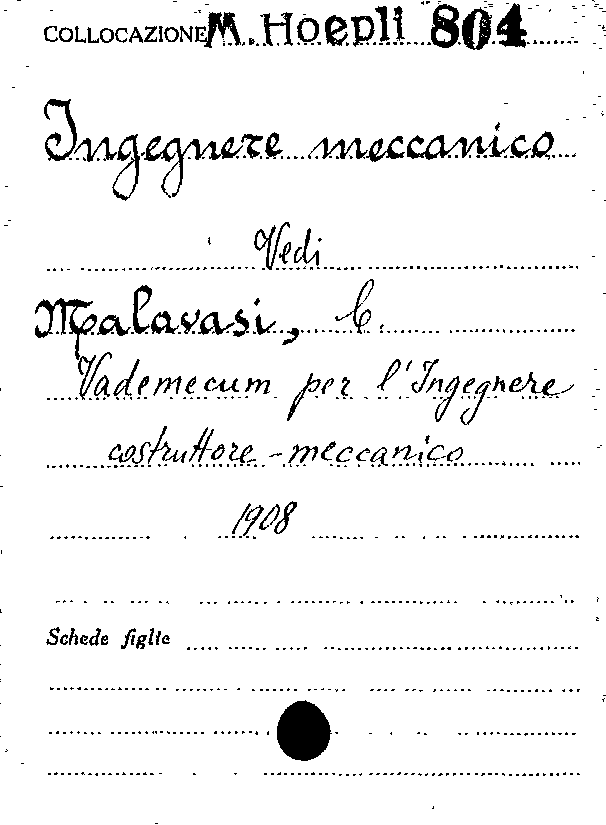 COLLOCAZIONE M. Hoepli 804
Ingegnere meccanico
Vedi
Malavasi, C.
Vademecum per l'Ingegnere
costruttore-meccanico
1908
Schede figlie